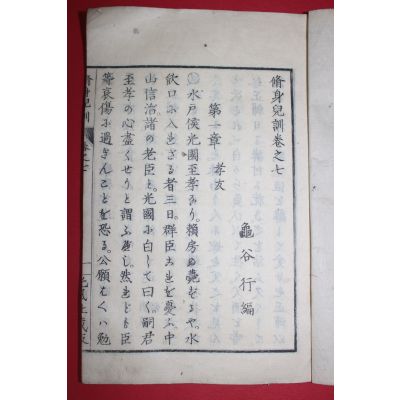 脩身兒訓卷之七
龜谷行編
第一章 孝友
水戸侯光圀至孝なり。賴房の薨ずるや。水
飲口に入らざる者三日。群臣之を憂ふ。中
山信治諸の老臣と。光圀に白して曰く。嗣君
至孝の心盡くせりと謂ふべし。然れども臣
等哀傷に過ぎんことを恐る。公願はくハ勉
脩身兒訓 卷之七